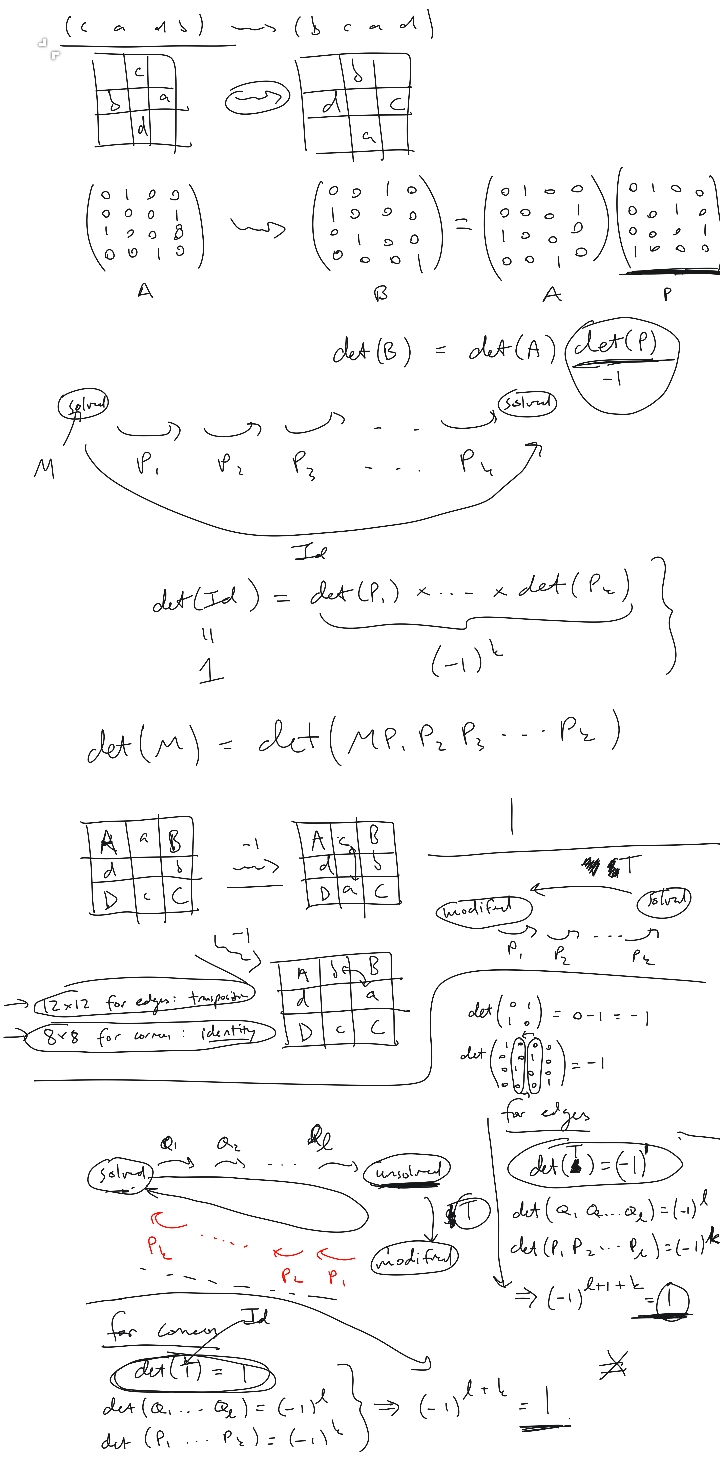 (c a d b) ⇝ (b c a d)
c
b a
d
⇝
b
d c
a
( 0 1 0 0 ) ⇝ ( 0 0 1 0 ) = ( 0 1 0 0 ) ( 0 1 0 0
( 0 0 0 1 ) ( 1 0 0 0 ) ( 0 0 0 1 ) ( 0 0 1 0
( 1 0 0 0 ) ( 0 1 0 0 ) ( 1 0 0 0 ) ( 0 0 0 1
( 0 0 1 0 ) ( 0 0 0 1 ) ( 0 0 1 0 ) ( 1 0 0 0
A B A P
det(B) = det(A) det(P)
-1
solved solved
M P₁ P₂ P₃ ... Pₖ
Id
det(Id) = det(P₁) × ... × det(Pₖ)
"
1 (-1)^k
det(M) = det(MP₁ P₂ P₃ ... Pₖ)
A a B
d b
D c C
-1
⇝
A c B
d b
D a C
-1
A b B
d a
D c C
→ 12×12 for edges: transposition
→ 8×8 for corners: identity
T
modified solved
P₁ P₂ ... Pₖ
det ( 0 1 / 1 0 ) = 0-1 = -1
det ( ) = -1
for edges
det(T) = (-1)¹
det(Q₁ Q₂ ... Qₗ) = (-1)^l
det(P₁ P₂ ... Pₖ) = (-1)^k
⇒ (-1)^{l+1+k} = 1
Q₁ Q₂ ... Qₗ
solved unsolved
T
modified
Pₖ ..... P₂ P₁
for corners Id
det(T) = 1
det(Q₁ ... Qₗ) = (-1)^l
det(P₁ ... Pₖ) = (-1)^k
⇒ (-1)^{l+k} = 1